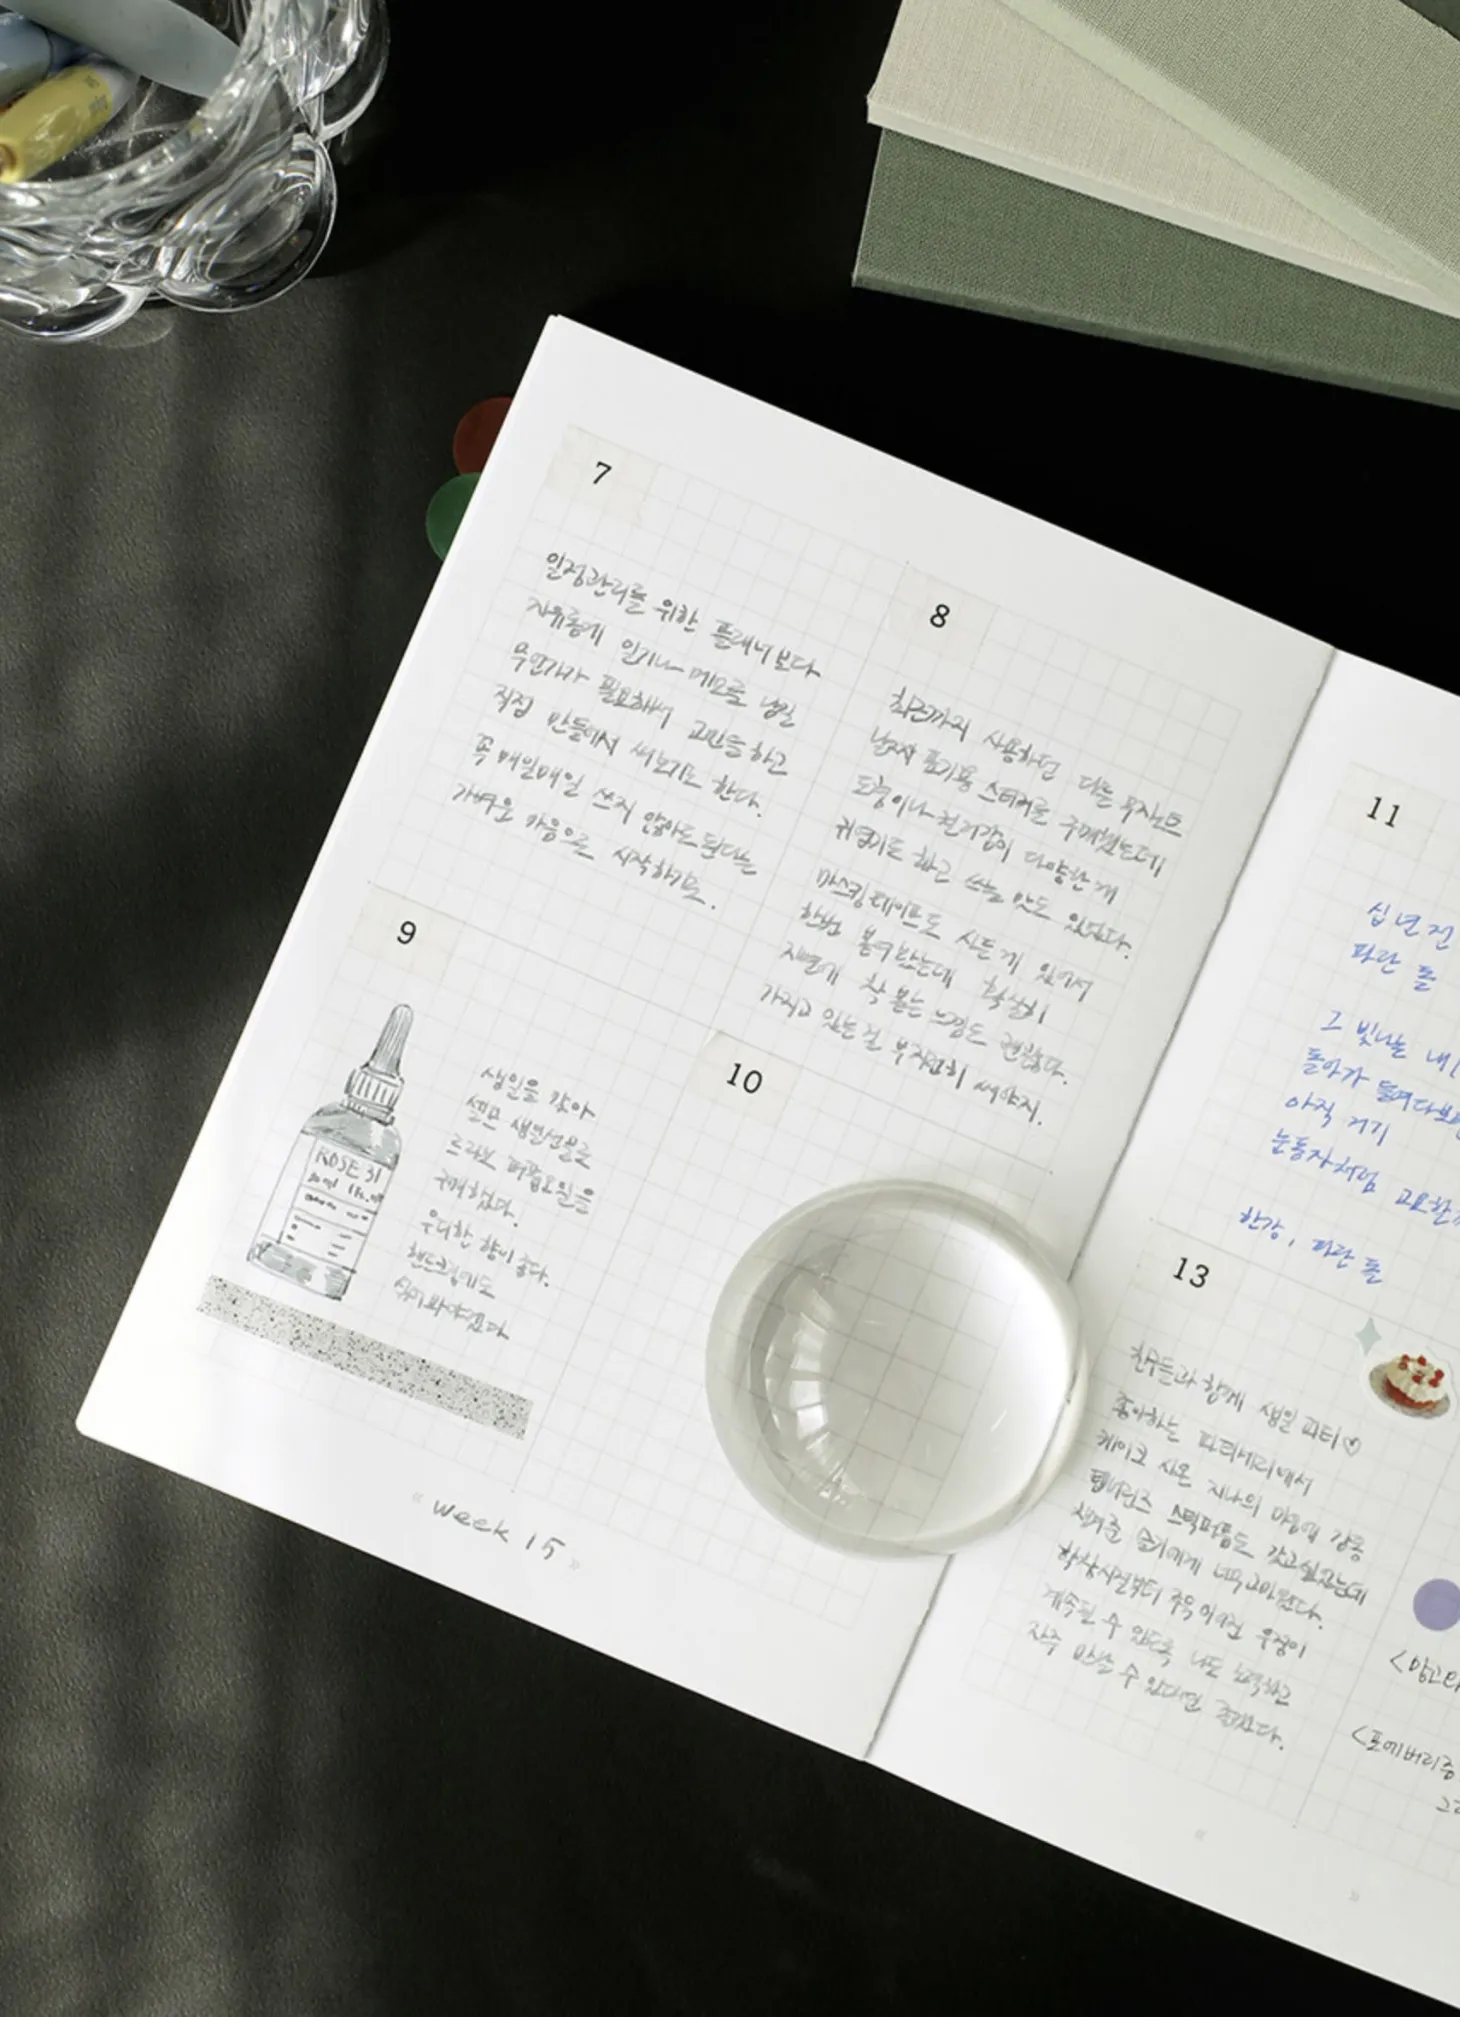 7
일정관리를 위한 플래너보다
자유롭게 일기나 메모를 남길
무언가가 필요해서 고민을 하고
직접 만들어서 써보기도 한다.
꼭 매일매일 쓰지 않아도 된다는
가벼운 마음으로 시작하기로.
8
최근까지 사용하던 다른 무지노트
날짜 표기용 스티커를 구매했는데
도형이나 전기감이 다양한 게
귀엽기도 하고 쓰는 맛도 있었다.
마스킹테이프도 사둔 게 있어서
한번 붙여봤는데 확실히
지면에 착 붙는 느낌도 괜찮다.
가지고 있는 걸 부지런히 써야지.
9
생일을 맞아
셀프 생일선물로
르라보 퍼퓸오일을
구매했다.
우디한 향이 좋다.
핸드크림에도
섞어봐야겠다
ROSE 31
10
“ week 15 ”
11
십 년 전
파란 돌
그 빛나는 내
돌아가 들여다보면
아직 거기
눈동자처럼 고요할
한강, 파란 돌
13
친구들과 함께 생일 파티♡
좋아하는 파티세리에서
케이크 사온 지나의 마음에 감동
탬버린즈 스틱퍼퓸도 갖고싶었는데
챙겨준 슬기에게 너무 고마웠다.
학창시절부터 쭉 이어진 우정이
계속될 수 있도록 나도 노력하고
자주 만날 수 있다면 좋겠다.
<망고
<포에버리증